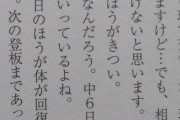 ますけど…でも、相
けないと思います。
ほうがきつい。
なんだろう。中６日
いっているよね。
日のほうが体が回復
。次の登板まであっ